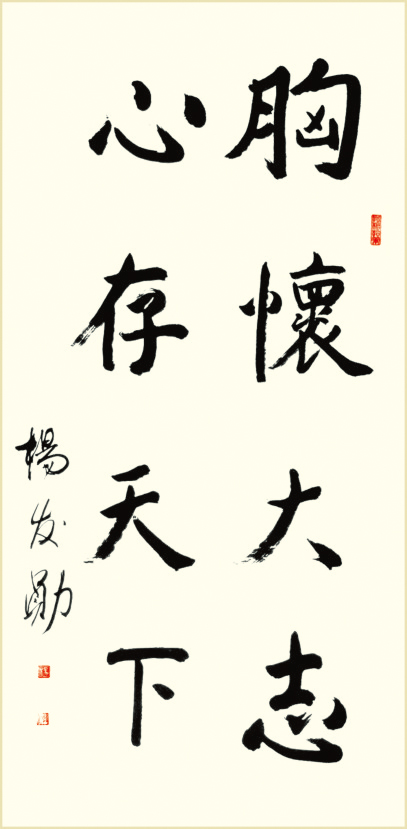 胸懷大志
心存天下
楊友勛